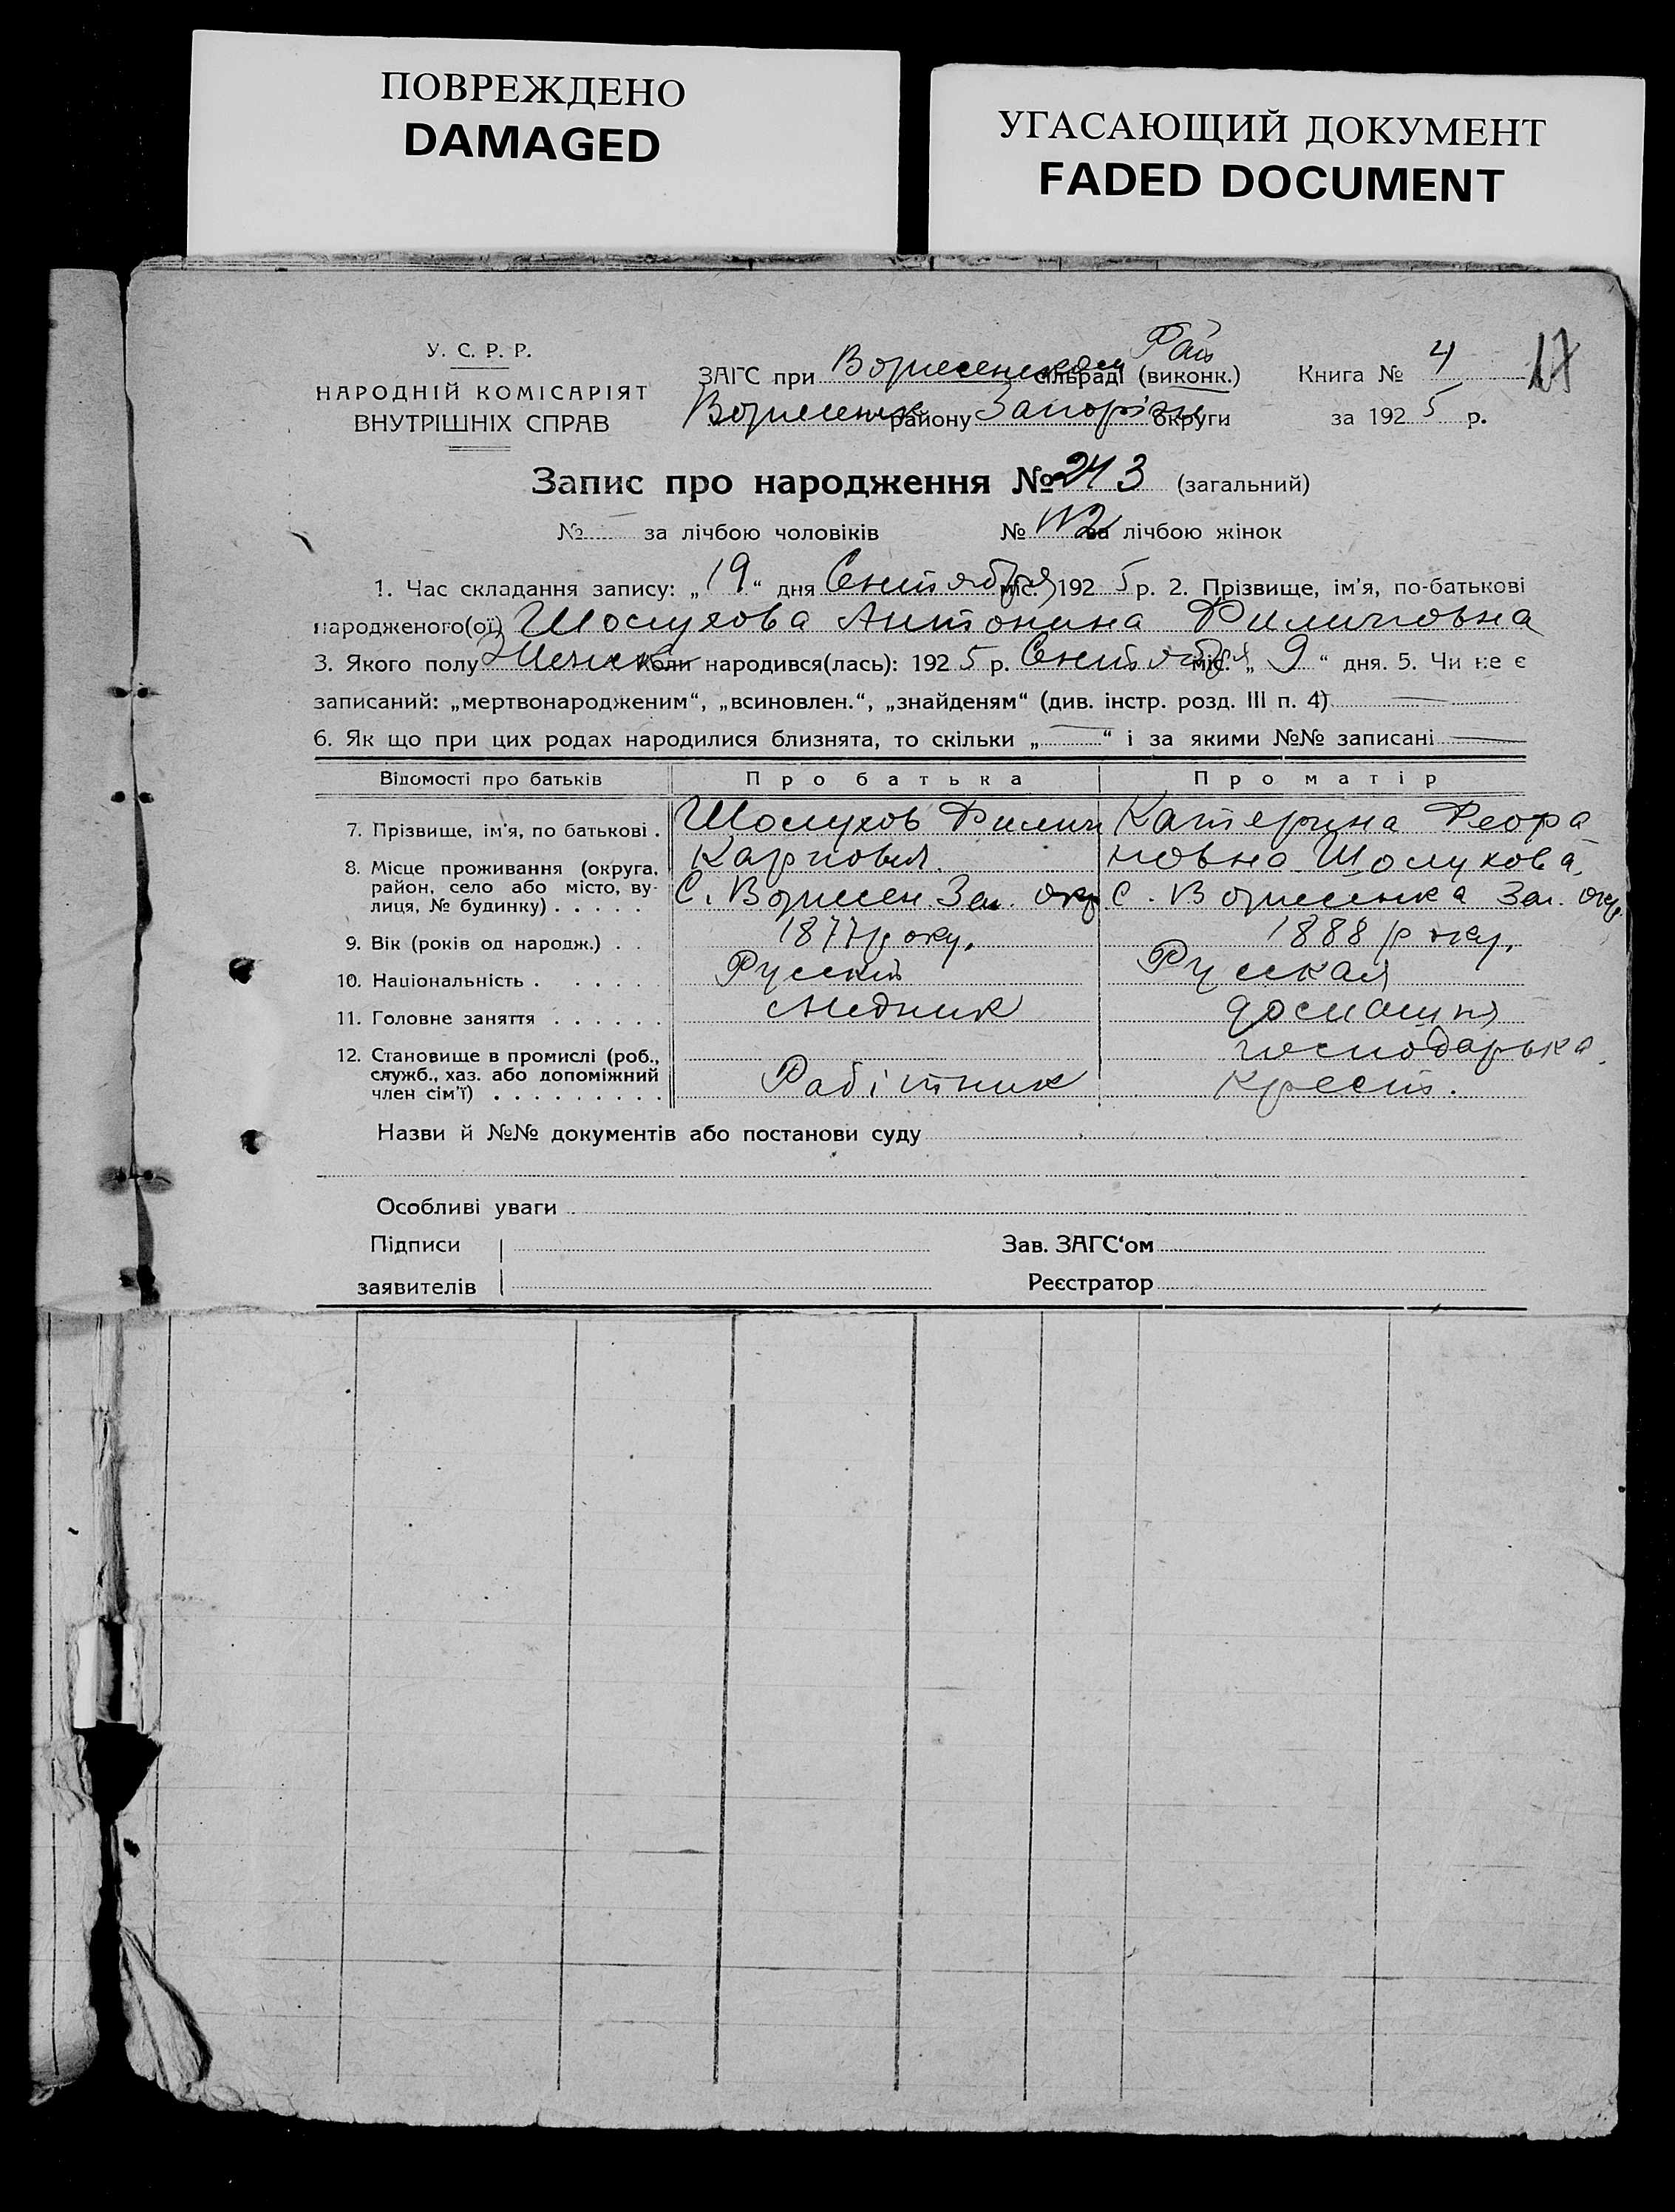 ПОВРЕЖДЕНО
DAMAGED
УГАСАЮЩИЙ ДОКУМЕНТ
FADED DOCUMENT
У. С. Р. Р.
НАРОДНІЙ КОМІСАРІЯТ
ВНУТРІШНІХ СПРАВ
Рай
ЗАГС при Вознесенском сільраді (виконк.)
Вознесенк району Запоріжн округи
Книга № 4
17
за 1925 р.
Запис про народження № 243 (загальний)
№ — за лічбою чоловіків № 112 за лічбою жінок
1. Час складання запису: „19“ дня Сентября міс. 1925 р. 2. Прізвище, ім'я, по-батькові
народженого(ої) Шолухова Антонина Филиповна
3. Якого полу Женск Коли народився(лась): 1925 р. Сентября міс. „9“ дня. 5. Чи не є
записаний: „мертвонародженим“, „всиновлен.“, „знайденям“ (див. інстр. розд. III п. 4) —
6. Як що при цих родах народилися близнята, то скільки „—“ і за якими №№ записані —
Відомості про батьків Про батька Про матір
7. Прізвище, ім'я, по батькові . Шолухов Филип Катерина Феора
Карпович новна Шолухова
8. Місце проживання (округа, район, село або місто, вулиця, № будинку) . . . . . С. Вознесен. Зап. окр. С. Вознесенка Зап. окр.
9. Вік (років од народж.) . . 1877 року. 1888 року.
10. Національність . . . . . . Русский Русская
11. Головне заняття . . . . . . Медник домашня
господарька
12. Становище в промислі (роб., служб., хаз. або допоміжний член сім'ї) . . . . . . . . . Рабітник Крест.
Назви й №№ документів або постанови суду
Особливі уваги
Підписи
заявителів
Зав. ЗАГС'ом
Реєстратор